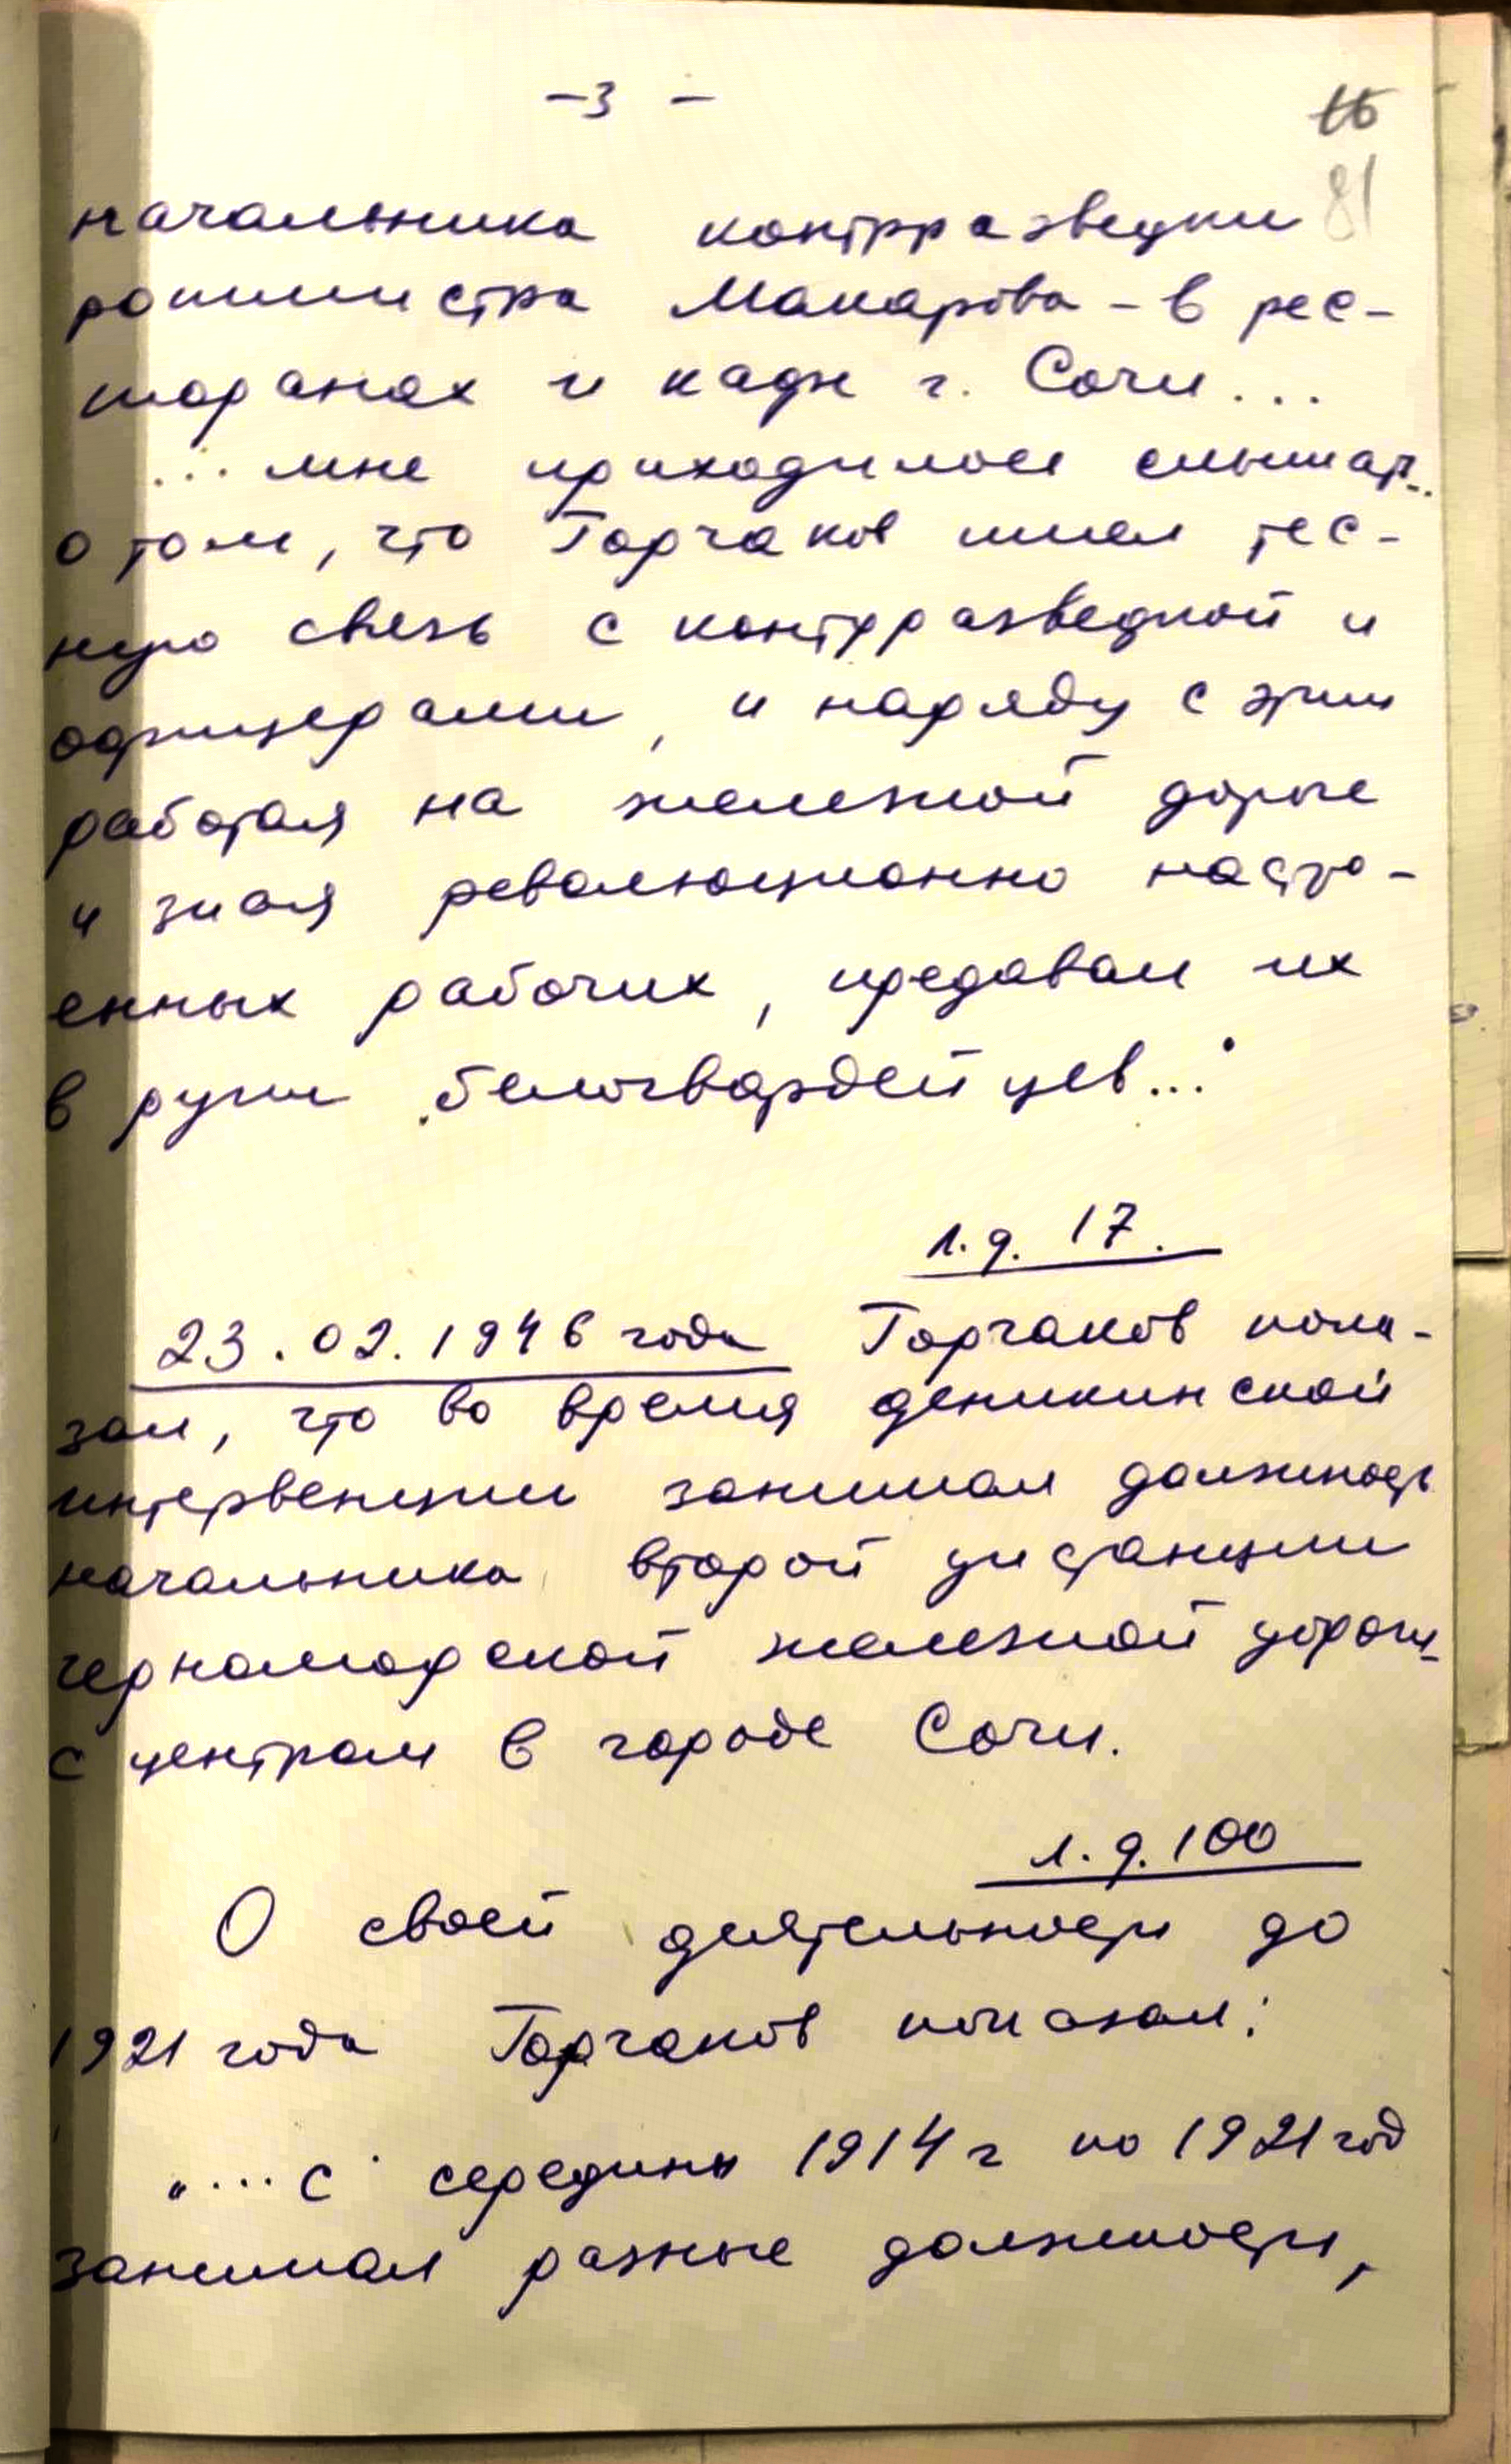 -3-
16
81
начальника контрразведки
ротмистра Макарова - в рес-
торанах и кафе г. Сочи...
... мне приходилось слышать
о том, что Горчаков имел тес-
ную связь с контрразведкой и
офицерами, и наряду с этим
работая на железной дороге
и зная революционно настро-
енных рабочих, предавал их
в руки белогвардейцев..."
л.д. 17.
23.02.1946 года Горчаков пока-
зал, что во время деникинской
интервенции занимал должность
начальника второй дистанции
черноморской железной дороги
с центром в городе Сочи.
л.д. 100
О своей деятельности до
1921 года Горчаков показал:
"... с середины 1914 г по 1921 год
занимал разные должности,